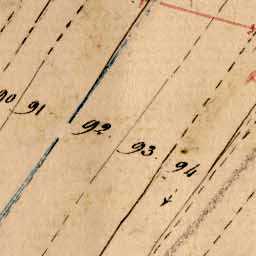 90
91
92.
93.
94